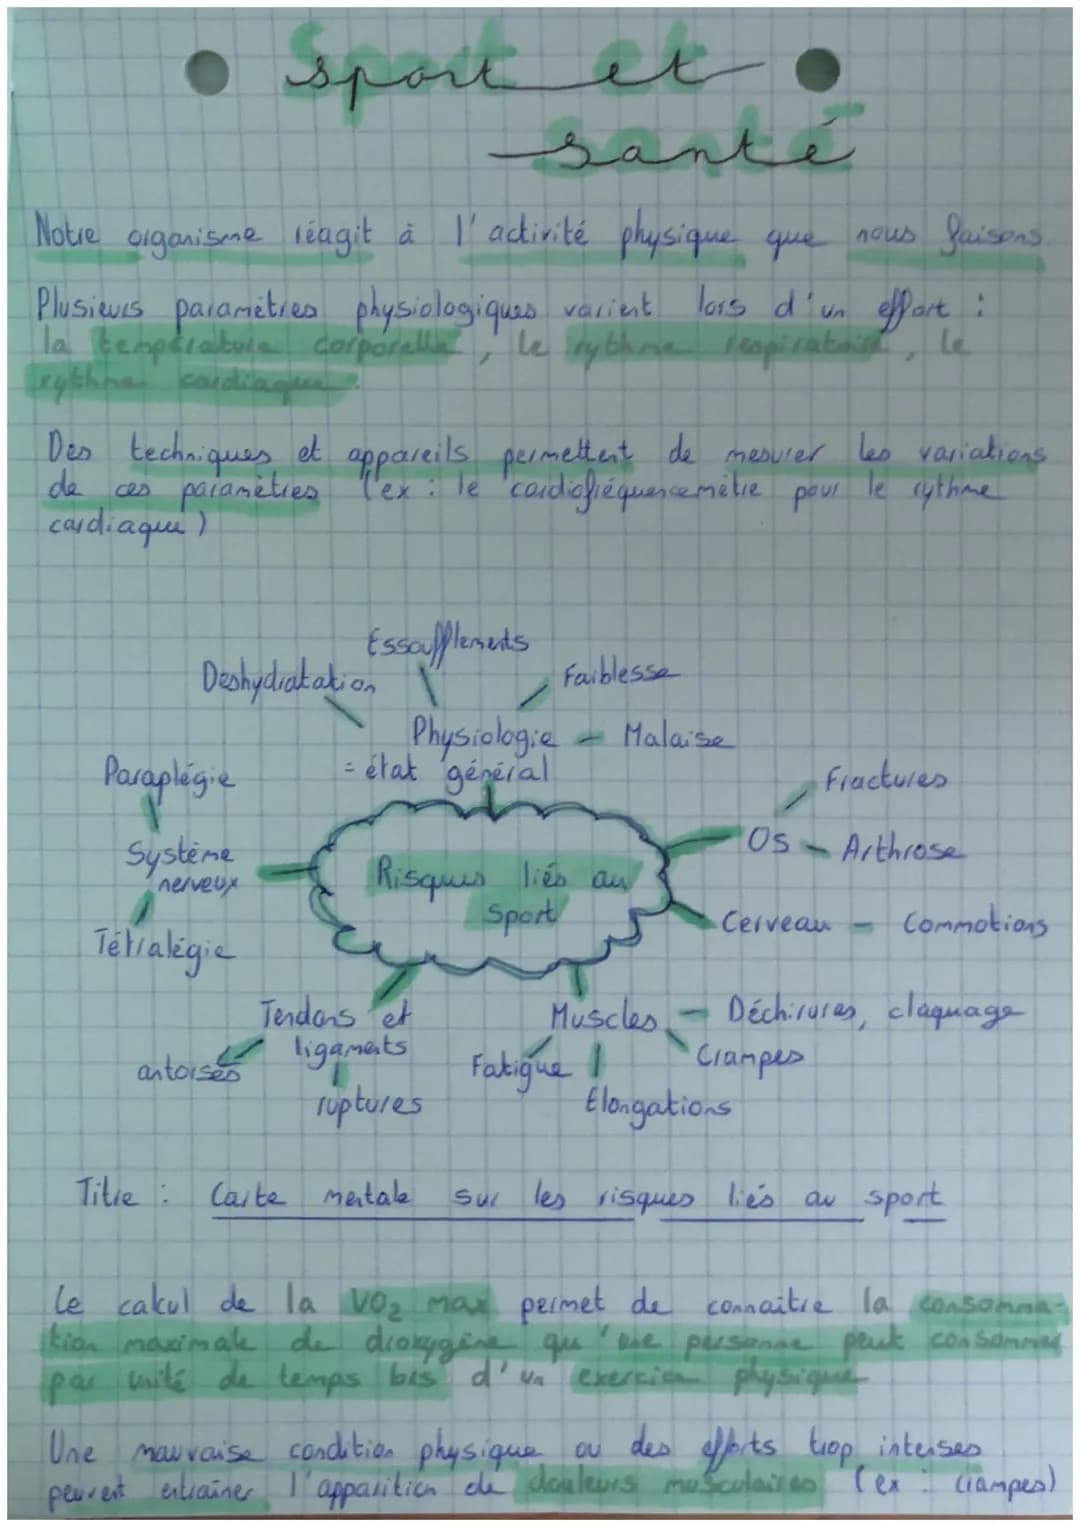 sport et
santé
Notre organisme réagit à l'activité physique que nous faisons.
Plusieurs paramètres physiologiques varient lors d'un effort :
la température corporelle, le rythme respiratoire, le
rythme cardiaque.
Des techniques et appareils permettent de mesurer les variations
de ces paramètres (ex : le cardiofréquencemètre pour le rythme
cardiaque)
Essoufflements
Deshydratation
Faiblesse
Physiologie
Malaise
= état général
Paraplégie
Fractures
Système
nerveux
Os
Arthrose
Risques liés au
Sport
Cerveau
Commotions
Tétralégie
Tendons et
ligaments
Muscles
Déchirures, claquage
antorses
Fatigue
Crampes
ruptures
Elongations
Titre : Carte mentale sur les risques liés au sport
Le calcul de la VO2 max permet de connaitre la consomma-
tion maximale de dioxygène qu'une personne peut consommer
par unité de temps lors d'un exercice physique
Une mauvaise condition physique ou des efforts trop intenses
peuvent entraîner l'apparition de douleurs musculaires (ex : crampes)